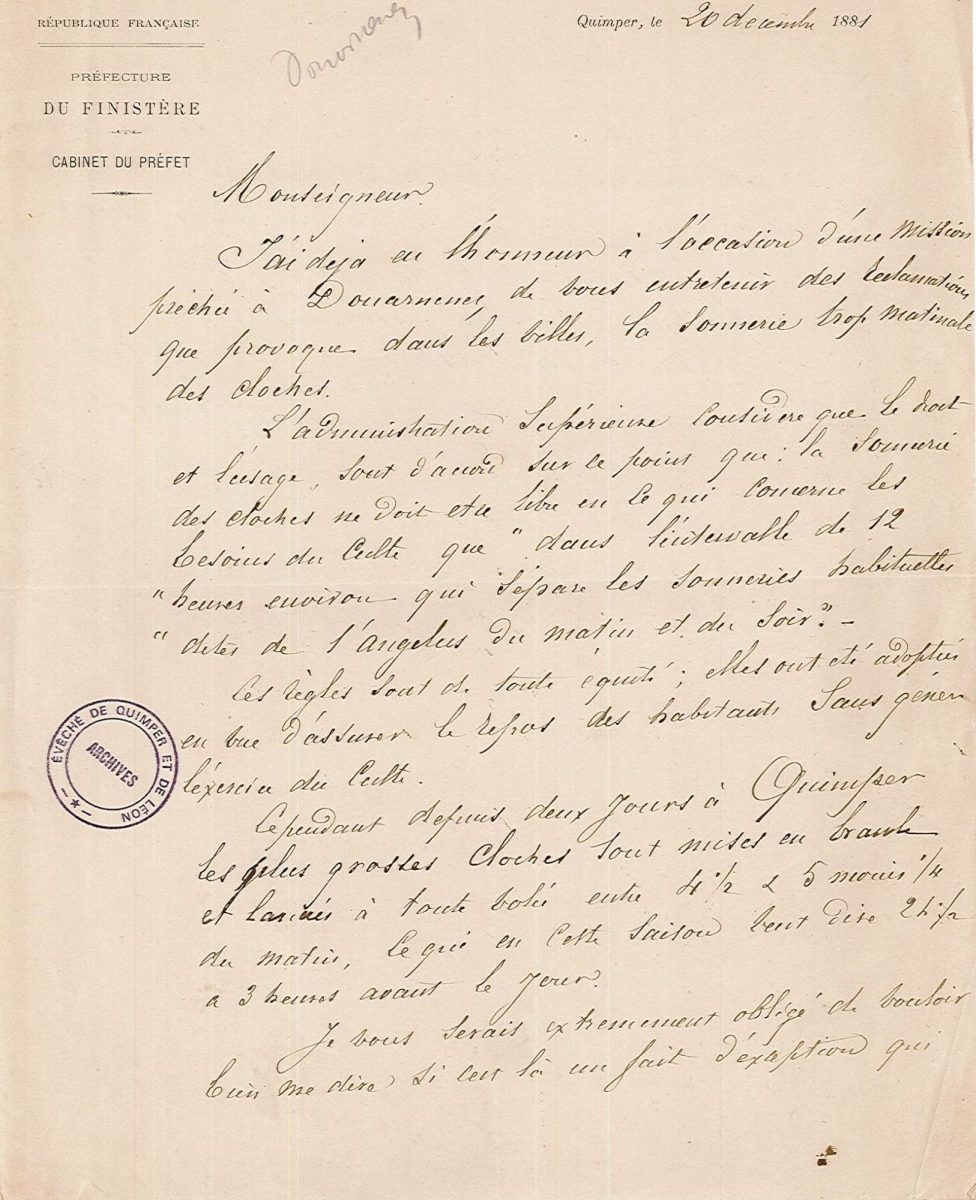 RÉPUBLIQUE FRANÇAISE
PRÉFECTURE
DU FINISTÈRE
CABINET DU PRÉFET
Douarnenez
Quimper, le 20 decembre 1881
Monseigneur.
J'ai deja eu l'honneur à l'occasion d'une Mission
préchée à Douarnenez, de vous entretenir des réclamations
que provoque dans les villes, la sonnerie trop matinale
des cloches.
L'administration Supérieure Considère que le droit
et l'usage, sont d'accord sur le point que: la sonnerie
des cloches ne doit etre libre en ce qui concerne les
besoins du Culte que "dans l'intervalle de 12
"heures environ qui sépare les sonneries habituelles
"dites de l'Angelus du matin et du soir". -
Ces règles sont de toute équité; elles ont été adoptées
en vue d'assurer le repos des habitants sans géner
l'éxercice du Culte.
Cependant depuis deux jours à Quimper
les plus grosses Cloches sont mises en branle
et lancées à toute volée entre 4 1/2 & 5 moins 1/4
du matin, ce qui en cette saison veut dire 2 h 1/2
a 3 heures avant le jour.
Je vous serais extremement obligé de vouloir
bien me dire si c'est là un fait d'éxception qui
ÉVÊCHÉ DE QUIMPER ET DE LÉON
ARCHIVES